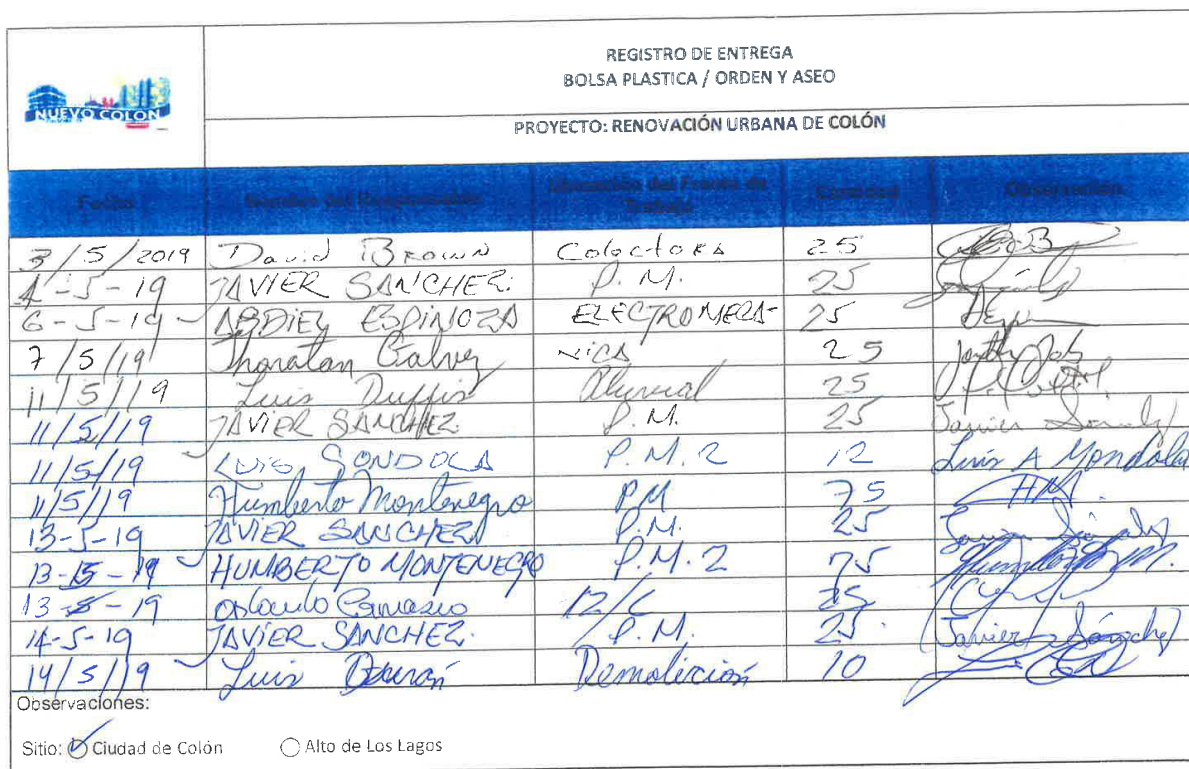 NUEVO COLÓN
REGISTRO DE ENTREGA
BOLSA PLASTICA / ORDEN Y ASEO
PROYECTO: RENOVACIÓN URBANA DE COLÓN
Fecha Nombre del Responsable Ubicación del Frente de Trabajo Cantidad Observación
3/5/2019 David BROWN Colectora 25
4-5-19 JAVIER SANCHEZ. P.M. 25
6-5-19 ABDIEL ESPINOZA ELECTROMECA- 25
7/5/19 Jhonatan Galvez NICA 25
11/5/19 Luis Duffis Aluvial 25
11/5/19 JAVIER SANCHEZ P.M. 25 Javier
11/5/19 LUIS GONDOLA P.M. 2 12 Luis A Mondola
11/5/19 Humberto Montenegro PM 75 HM.
13-5-19 JAVIER SANCHEZ P.M. 25
13-5-19 HUMBERTO MONTENEGRO P.M. 2 75
13-5-19 Orlando 12/C 25
14-5-19 JAVIER SANCHEZ. P.M. 25. Javier Sánchez
14/5/19 Luis Demolición 10
Observaciones:
Sitio: Ciudad de Colón Alto de Los Lagos